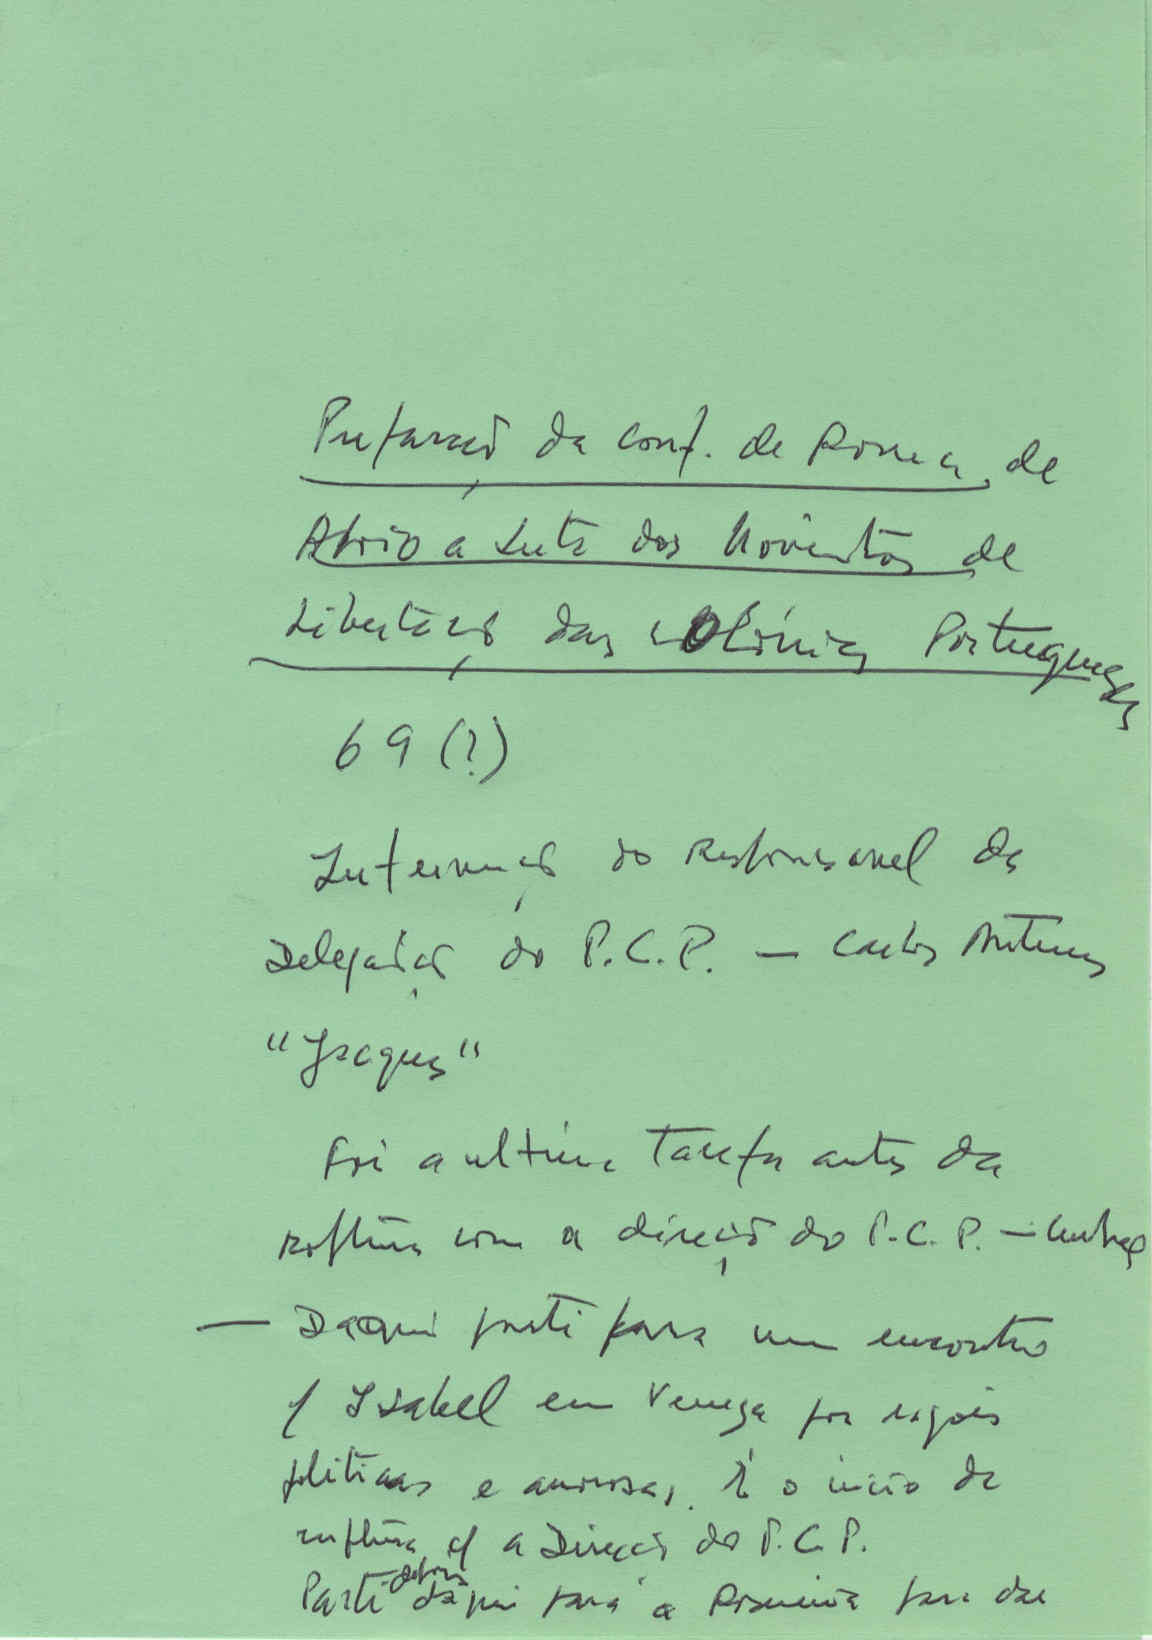 Preparação da Conf. de Roma, de
Apoio a Luta dos Movimentos de
Libertação das Colónias Portuguesas
69 (?)
Intervenção do Responsavel da
Delegação do P.C.P. — Carlos Antunes
"Jacques"
Foi a ultima Tarefa antes da
Ruptura com a direção do P.C.P. —
— Daqui parti para um encontro
c/ Isabel em Veneza por razões
politicas e amorosas. É o inicio da
ruptura c/ a Direção do P.C.P.
Parti depois daqui para a Roménia para dar